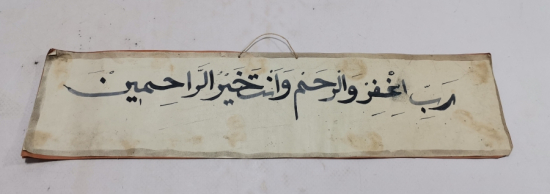 رَبِّ اغْفِرْ وَارْحَمْ وَأَنْتَ خَيْرُ الرَّاحِمِينَ